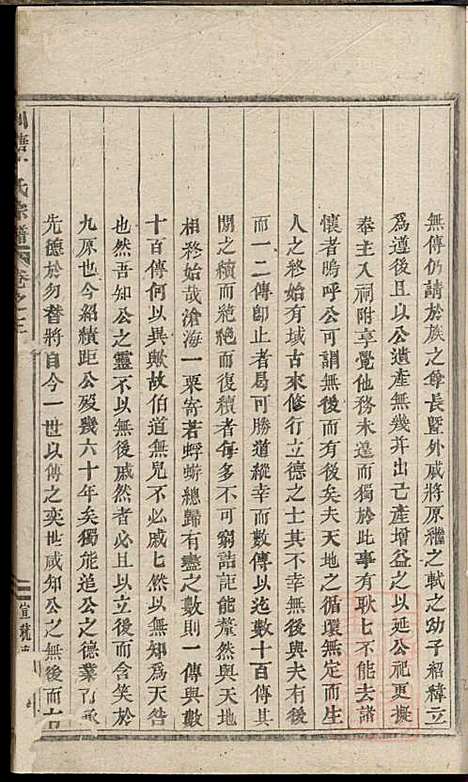 無傳仍請於族之尊長暨外戚將原繼之軾之幼子紹緯立
爲遵後且以公遺產無幾并出己產增益之以延公祀更擬
奉主入祠附享覺他務未遑而獨於此事有耿七不能去諸
懷者嗚呼公可謂無後而有後矣夫天地之循環無定而生
人之終始有域古來修行立德之士其不幸無後與幸有後
而一二傳卽止者曷可勝道縱幸而數傳以迄數十百傳其
間之續而絶絶而復續者每多不可窮詰詎能釐然與天地
相終始哉滄海一粟寄若蜉蝣總歸有盡之數則一傳與數
十百傳何以異歟故伯道無兒不必戚七然以無知爲天咎
也然吾知公之靈不以無後戚然者必且以立後而含笑於
九原也今紹續距公歿幾六十年矣獨能追公之德業
先德於勿替將自今一世以傳之奕世咸知公之無後而有
氏宗譜 卷之